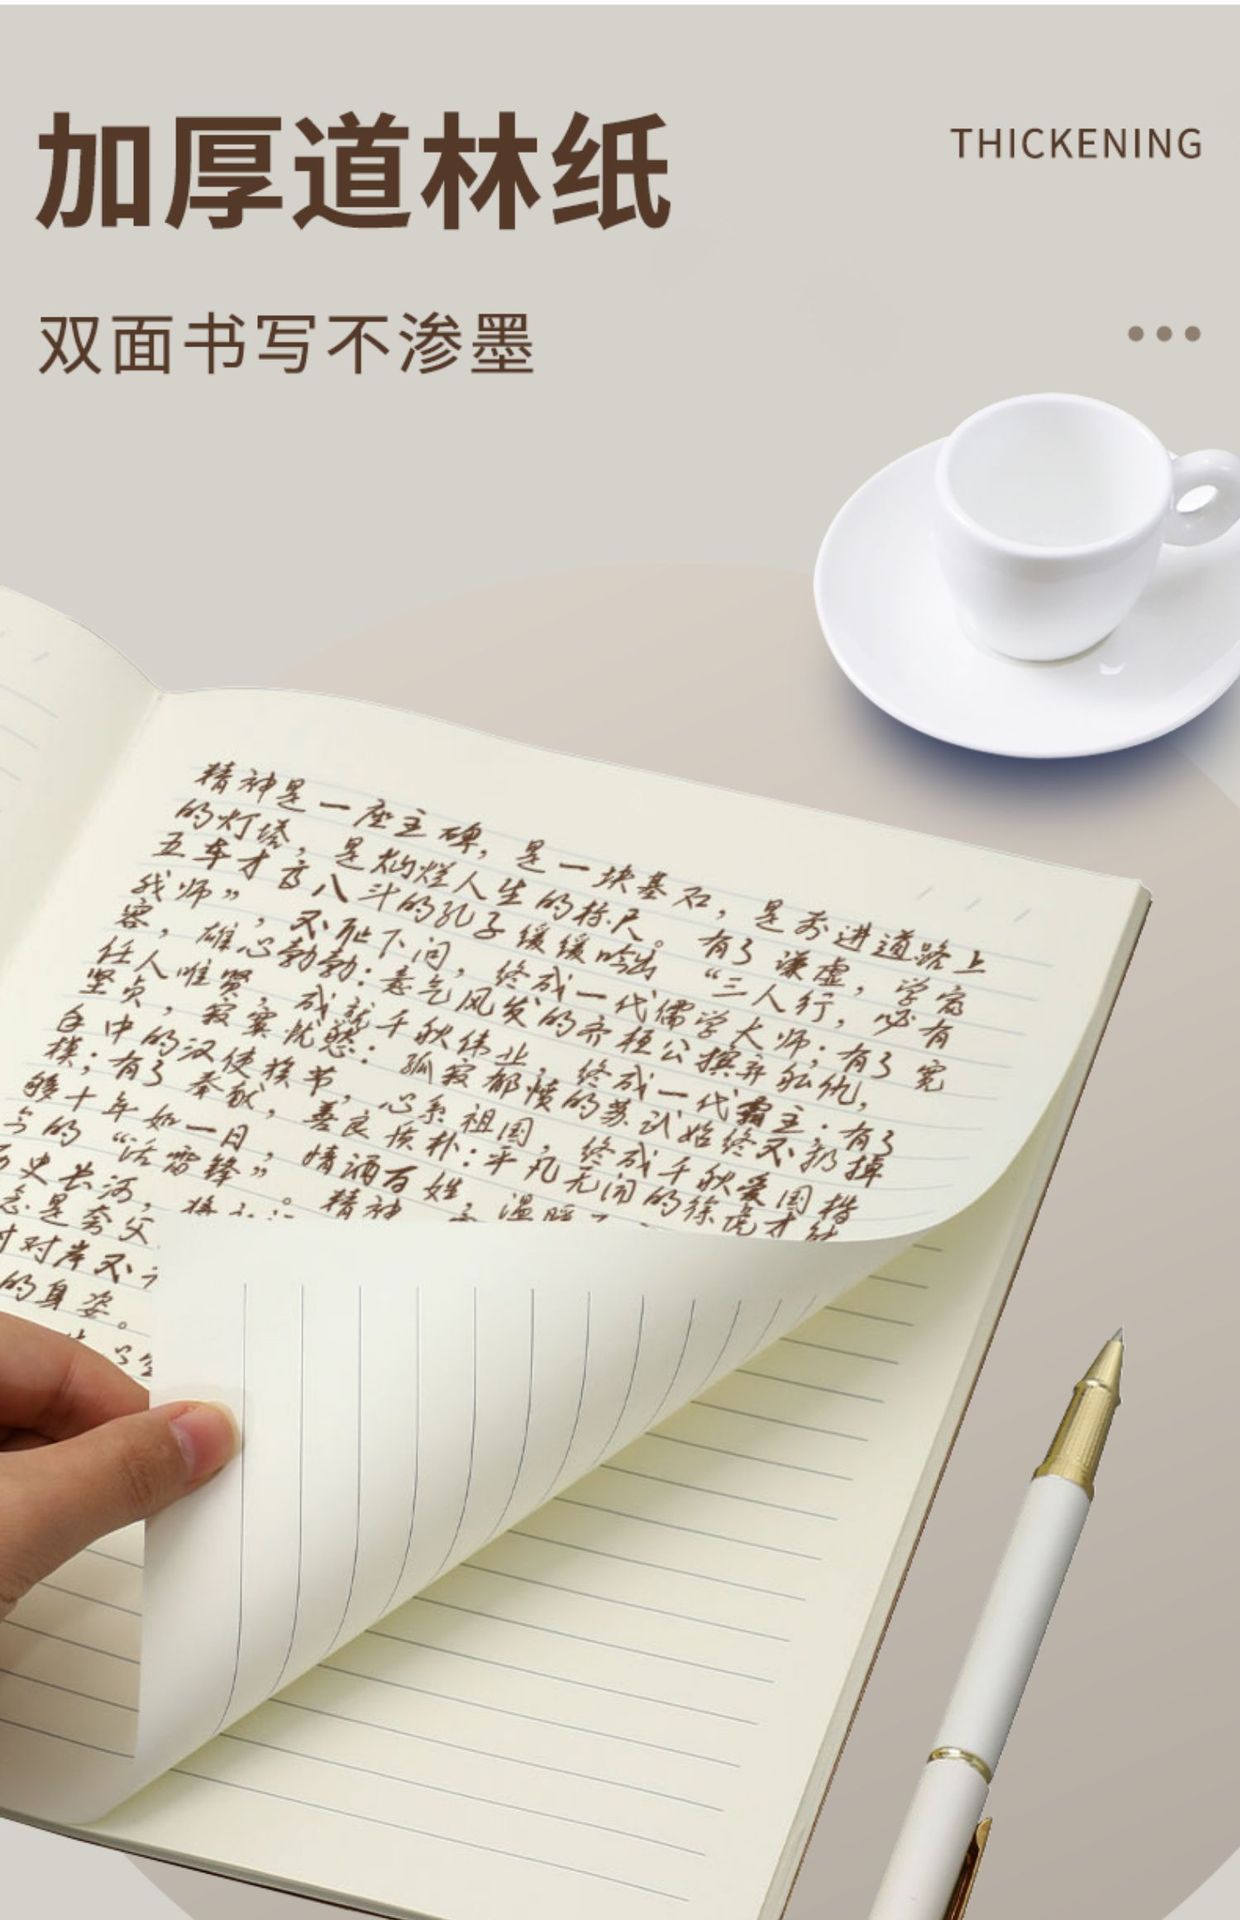 加厚道林纸
THICKENING
双面书写不渗墨
精神是一座主碑，是一块基石，是前进道路上
的灯塔，是灿烂人生的标尺。有了谦虚，学富
五车才高八斗的孔子缓缓吟出“三人行，必有
我师”，不耻下问，终成一代儒学大师；有了宽
容，雄心勃勃：意气风发的齐桓公摒弃私仇，
任人唯贤，成就千秋伟业，终成一代霸主．有了
坚贞，寂寞忧愁：孤寂都愤的苏武始终不扔掉
手中的汉使旄节，心系祖国，终成千秋爱国楷
模；有了奉献，善良质朴：平凡无闻的徐虎才能
够十年如一日，情洒百姓，温暖
今的“活雷锋”。精神
历史长河，
是夸父
对岸不
的身姿。